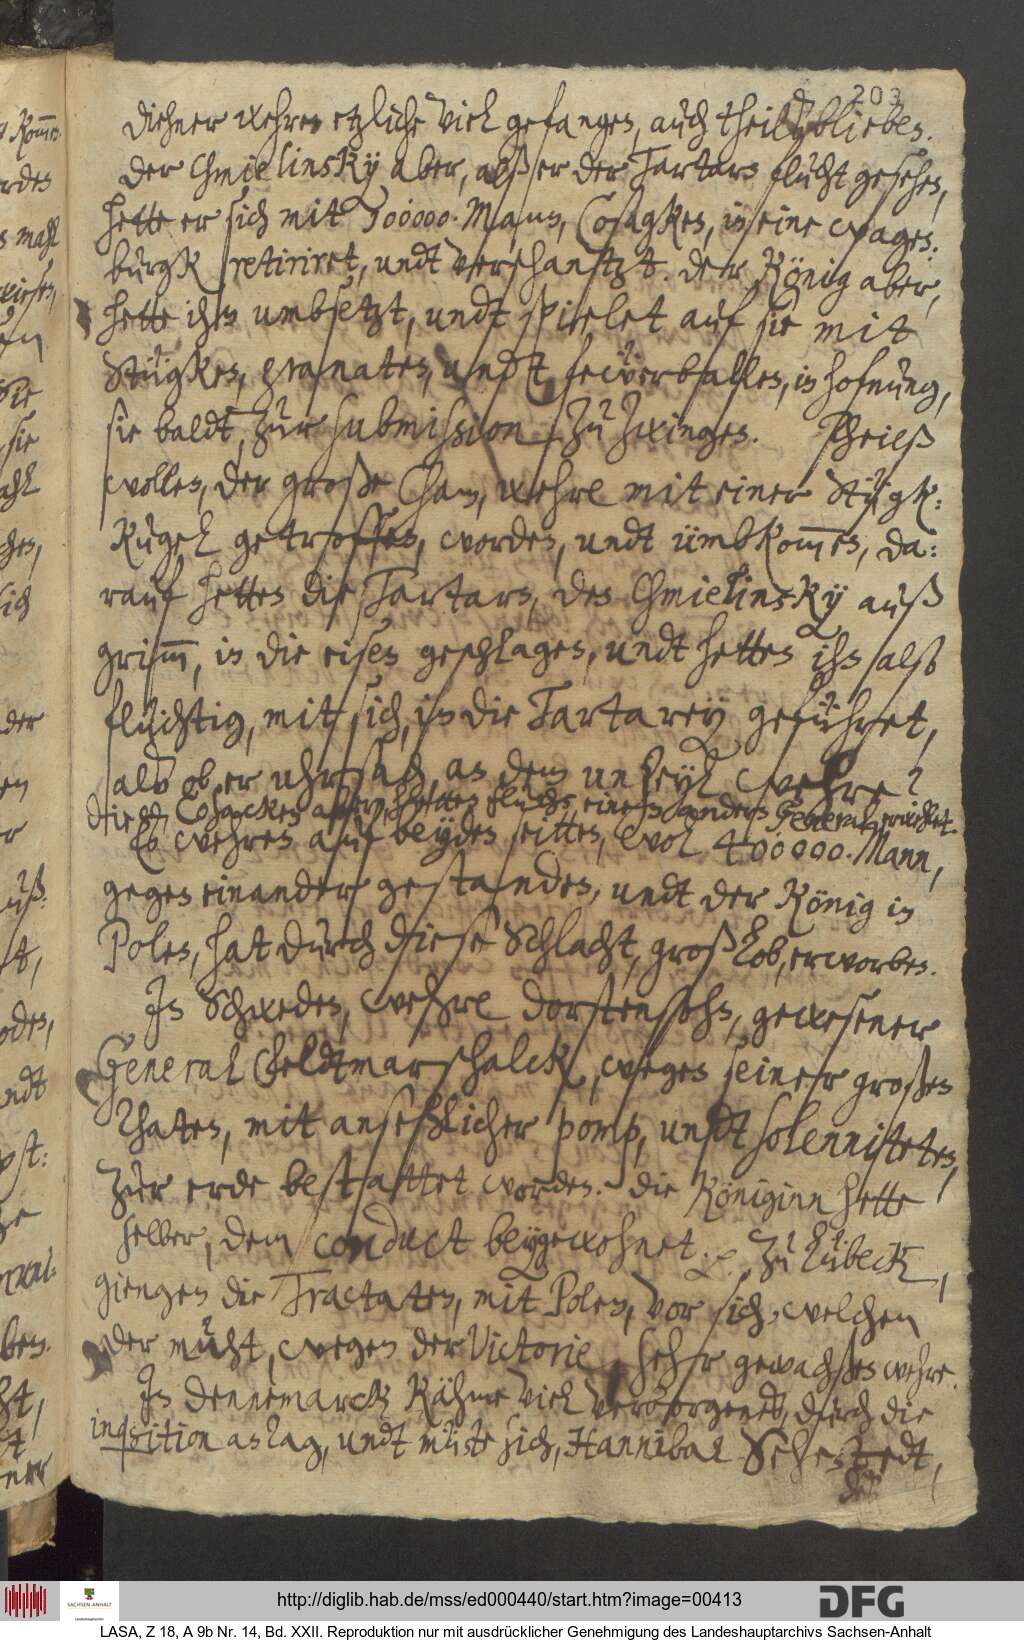 203
diehner wehren etzliche viel gefangen, auch theilß blieben.
Der Chmielinsky aber, alß er der Tartarn flucht gesehen,
hette er sich mit 100000. Mann, Cosagken, in eine wagen:
burgk retiriret, undt verschantzt. der König aber,
hette ihn umbsetzt, undt spielet auf sie mit
Stügken, granaten, undt feẅerballen, in hofnung,
sie baldt, zur submission zu zwingen. Theilß
wollen, der große Cham, wehre mit einer Stügk:
Kugel getroffen, worden, undt ümbkommen, da:
rauf hetten die Tartarn, den Chmielinsky auß
grimm, in die eisen geschlagen, undt hetten ihn alß
flüchtig, mit sich, in die Tartarey geführet,
alß ob er uhrsach, an dem unheyl wehre?
Die Cosacken aber, hetten flugs einen andern General erwehlet.
Es wehren auf beyden seitten, wol 400000. Mann,
gegen einander gestanden, undt der König in
Polen, hat durch diese Schlacht, groß Lob, erworben.
In Schweden, wehre Dorstensohn, gewesener
General Feldtmarschalck, wegen seiner großen
thaten, mit ansehlicher pomp, undt solenniteten,
zur erde bestattet worden. die Königinn hette
selber, dem conduct beygewohnet. Zu Lübeck,
giengen die Tractaten, mit Polen, vor sich, welchen
der muht, wegen der Victorie, sehr gewachßen wehre.
In Dennemarck kähme viel verborgenes, durch die
inquisition an tag, undt müste sich, Hannibal Sehestedt,
der
http://diglib.hab.de/mss/ed000440/start.htm?image=00413
DFG
SACHSEN-ANHALT
LASA, Z 18, A 9b Nr. 14, Bd. XXII. Reproduktion nur mit ausdrücklicher Genehmigung des Landeshauptarchivs Sachsen-Anhalt